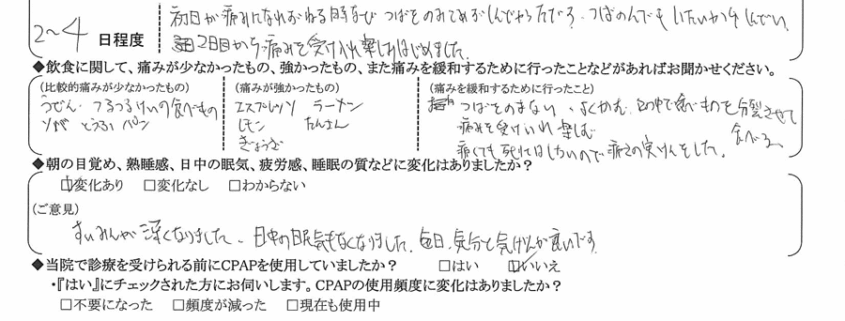 2〜4 日程度
初日が痛みになれおわる時なび つばをのみてめがしんどかったです。つばのんでもいたいからしんどい
2日目から痛みを受け入れ楽しみはじめました。
◆飲食に関して、痛みが少なかったもの、強かったもの、また痛みを緩和するために行ったことなどがあればお聞かせください。
(比較的痛みが少なかったもの) (痛みが強かったもの) (痛みを緩和するために行ったこと)
うどん、つるつるけいの食べもの エスプレッソ ラーメン つばをのまない、よくかむ、口の中で食べものを分裂させて
ソバ とうふ パン レモン たんさん 痛みを受けいれ 楽しむ 食べる、
ぎょうざ 痛くても死にはしないので痛さの実けんをした。
◆朝の目覚め、熟睡感、日中の眠気、疲労感、睡眠の質などに変化はありましたか?
☑変化あり □変化なし □わからない
(ご意見)
すいみんが深くなりました、日中の眠気もなくなりました。毎日、気分と気げんが良いです
◆当院で診療を受けられる前にCPAPを使用していましたか? □はい ☑いいえ
・『はい』にチェックされた方にお伺いします。CPAPの使用頻度に変化はありましたか?
□不要になった □頻度が減った □現在も使用中